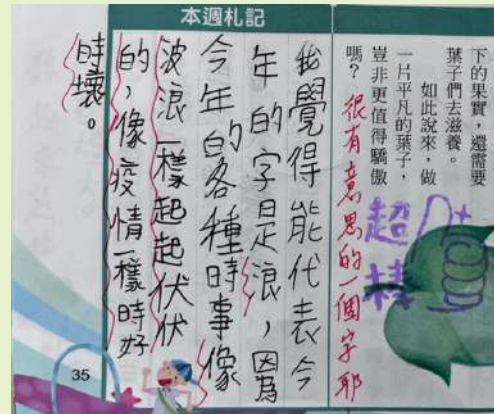 下的果實，還需要
葉子們去滋養。
如此說來，做
一片平凡的葉子，
豈非更值得驕傲
嗎？
很有意思的一個字耶
超棒
本週札記
我覺得能代表今
年的字是浪，因為
今年的各種時事像
波浪一樣起起伏伏
的，像疫情一樣時好
時壞。
35